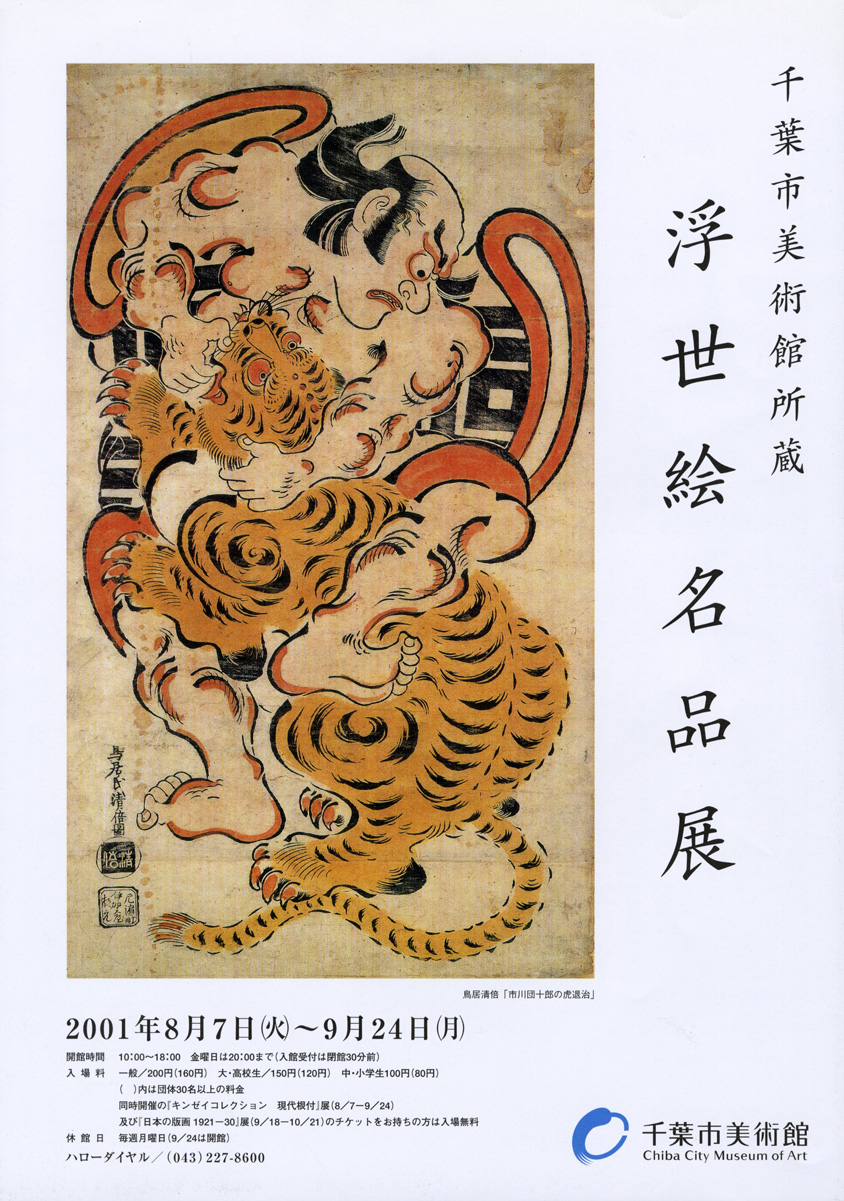 千葉市美術館所蔵
浮世絵名品展
鳥居氏清倍圖
清倍
鳥居清倍「市川団十郎の虎退治」
2001年8月7日㈫〜9月24日㈪
開館時間　10:00〜18:00　金曜日は20:00まで(入館受付は閉館30分前)
入場料　一般／200円(160円)　大・高校生／150円(120円)　中・小学生100円(80円)
(　)内は団体30名以上の料金
同時開催の『キンゼイコレクション　現代根付』展(8／7−9／24)
及び『日本の版画 1921−30』展(9／18−10／21)のチケットをお持ちの方は入場無料
休館日　毎週月曜日(9／24は開館)
ハローダイヤル／(043)227-8600
千葉市美術館
Chiba City Museum of Art